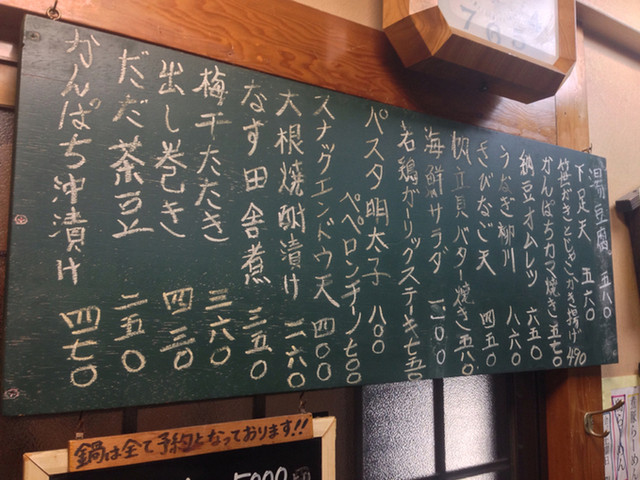 湯豆腐 五八〇
下足天 五六〇
笹がきとじゃこかき揚げ 490
かんぱちカマ焼き 五七〇
納豆オムレツ 六五〇
うなぎ柳川 八六〇
きびなご天 四五〇
帆立貝バター焼き 五八〇
海鮮サラダ 一、一〇〇
若鶏ガーリックステーキ 七五〇
パスタ明太子 八〇〇
ペペロンチーノ 七〇〇
スナックエンドウ天 四〇〇
大根焼酎漬け 二六〇
なす田舎煮 三五〇
梅干たたき 三六〇
出し巻き 四三〇
だだ茶豆 二五〇
かんぱち沖漬け 四七〇
鍋は全て予約となっております!!